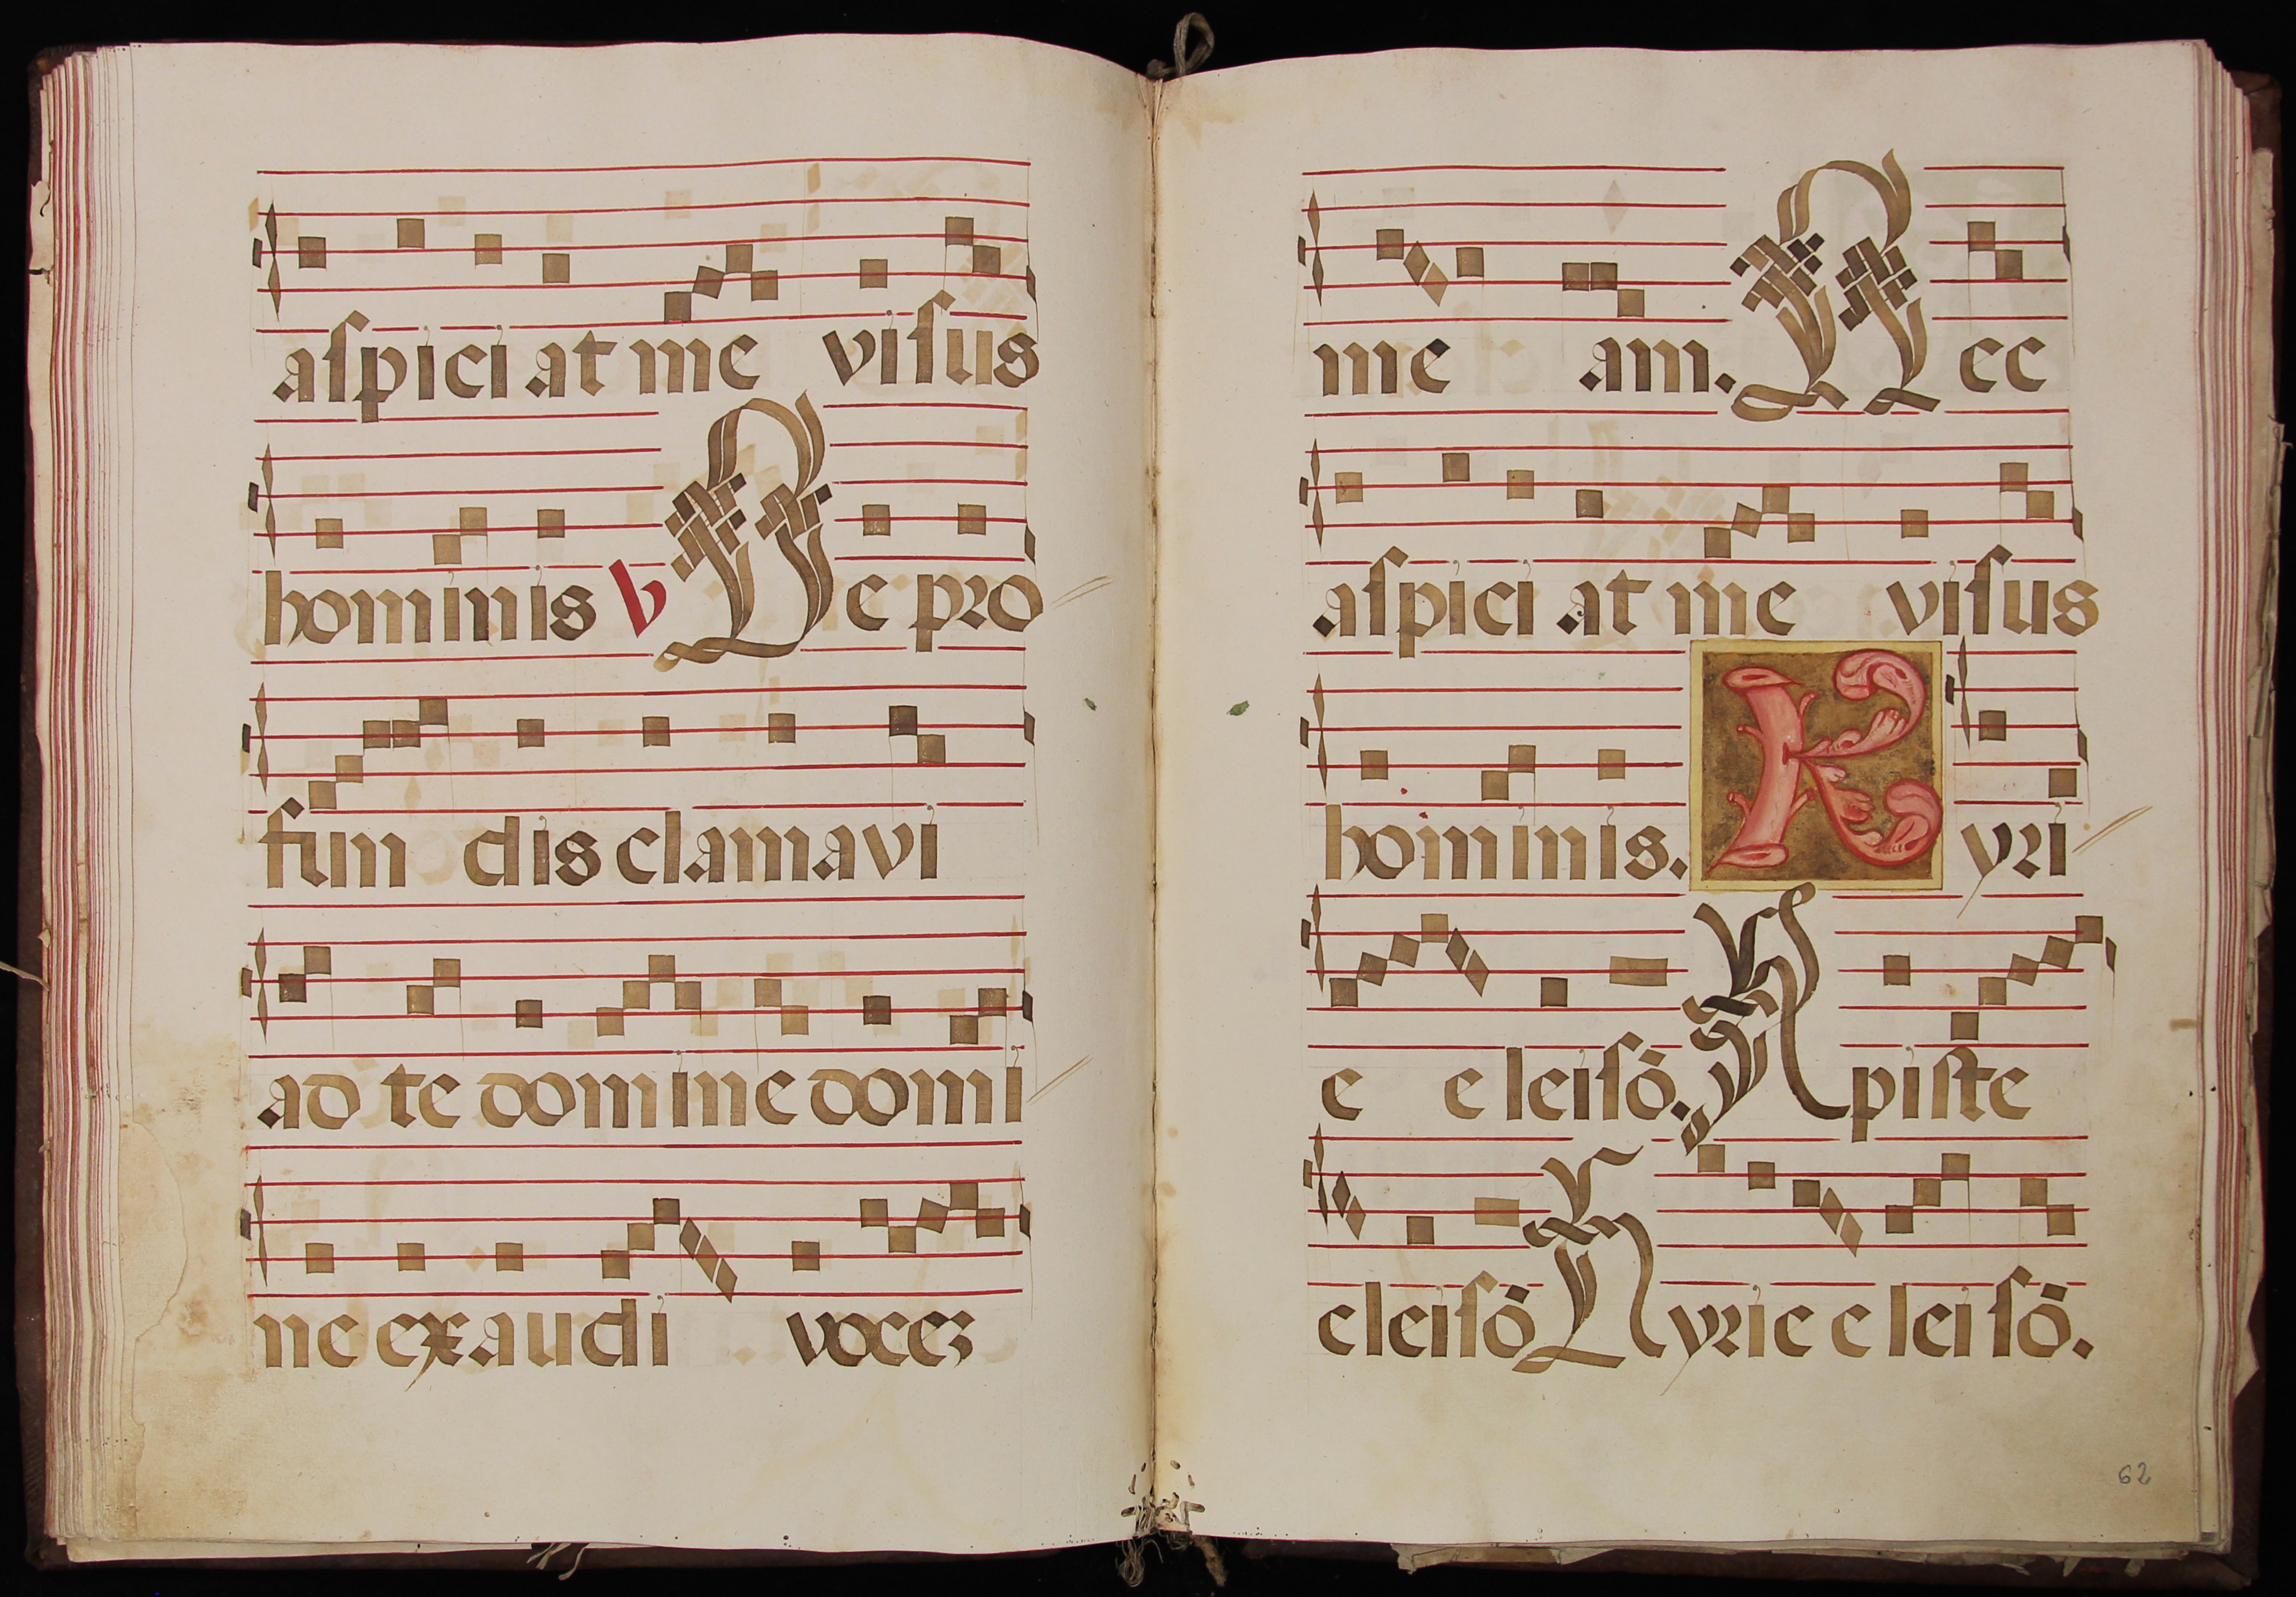 aſpiciat me viſus
hominis ℣ De pro
fundis clamavi
ad te domine domi
ne exaudi voceꝫ
meam. Nec
aſpiciat me viſus
hominis. Kyri
e eleiſō. Xpiſte
eleiſō Kyrie eleiſō.
62